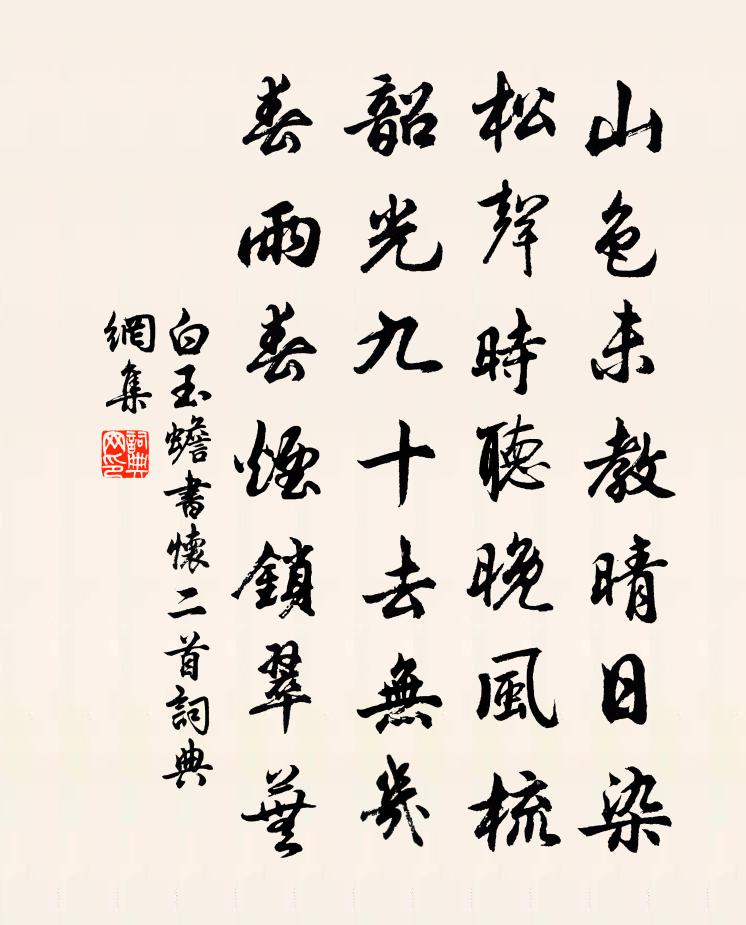 山色未教晴日染
松聲時聽晚風梳
韶光九十去無幾
春雨春煙鎖翠蕪
白玉蟾書懷二首詞典
網集
詞典
网印